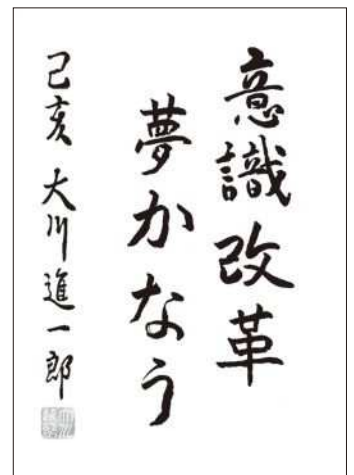 意識改革
夢かなう
己亥 大川進一郎